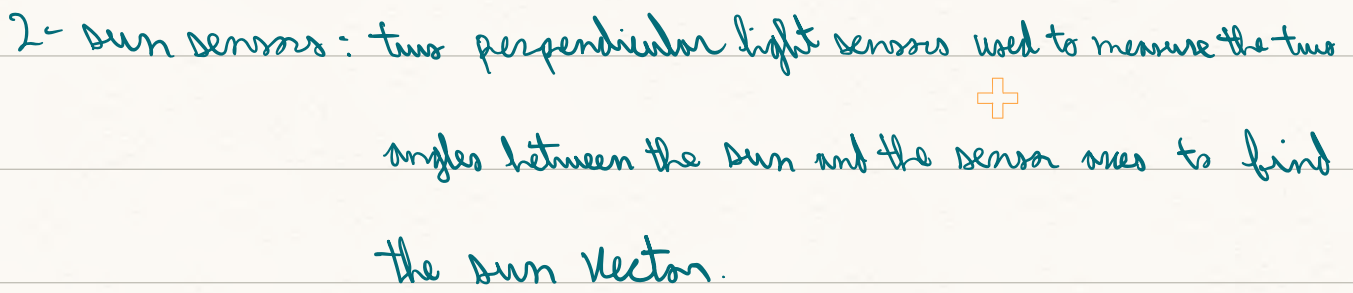 2- sun sensors: two perpendicular light sensors used to measure the two
angles between the sun and the sensor axes to find
the sun vector.